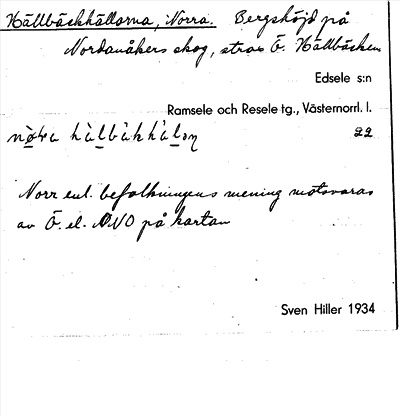 Hällbäckhällorna, Norra. Bergshöjd på
Nordanåkers skog, strax Ö. Hällbäcken
Edsele s:n
Ramsele och Resele tg., Västernorrl. l.
22
Norr enl. befolkningens mening motsvaras
av Ö. el. NNO på kartan
Sven Hiller 1934